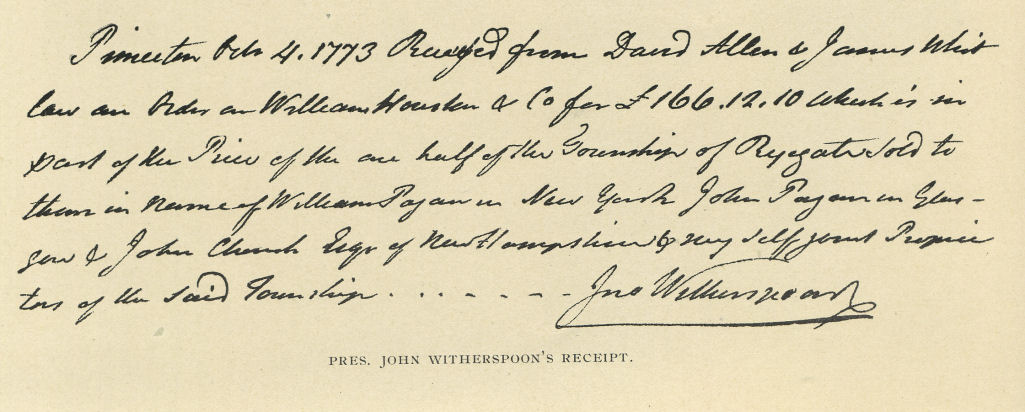 Princeton Octr 4. 1773 Received from David Allen & James Whit
law an Order on William Houston & Co for £166.12.10 which is in
part of the Price of the one half of the Township of Ryegate Sold to
them in Name of William Pagan in New York John Pagan in Glas-
gow & John Church Esqr of New Hampshire & my Self joint Proprie
tors of the Said Township . . . . - - - - Jno Witherspoon
PRES. JOHN WITHERSPOON'S RECEIPT.